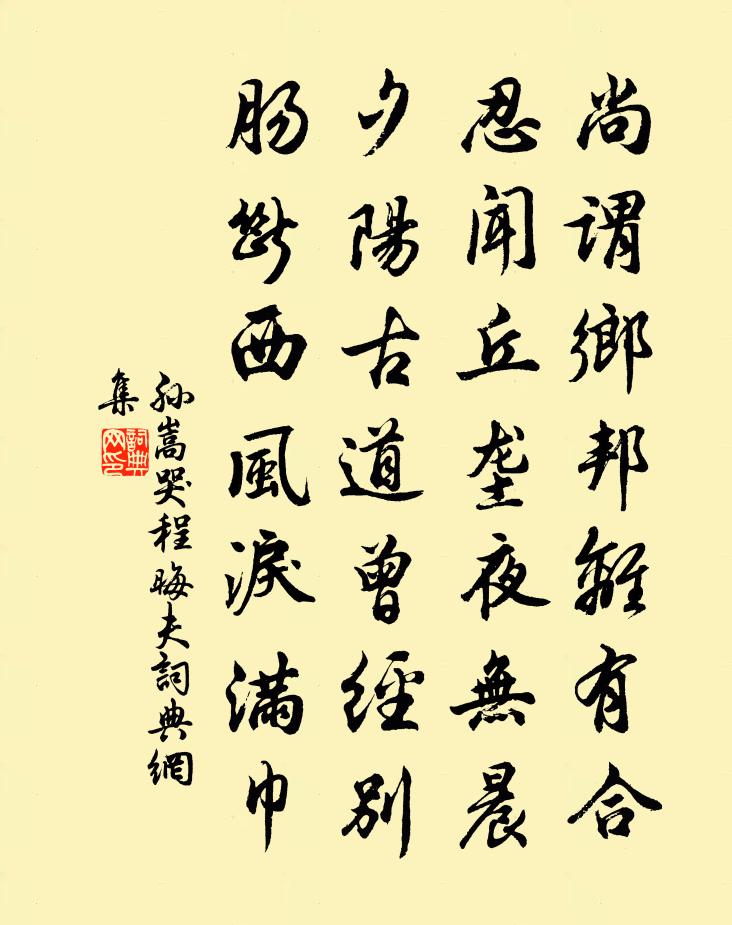 尚謂鄉邦離有合
忍聞丘壟夜無晨
夕陽古道曾經別
肠斷西風淚滿巾
孙嵩哭程晦夫詞典網
集
詞典
网印